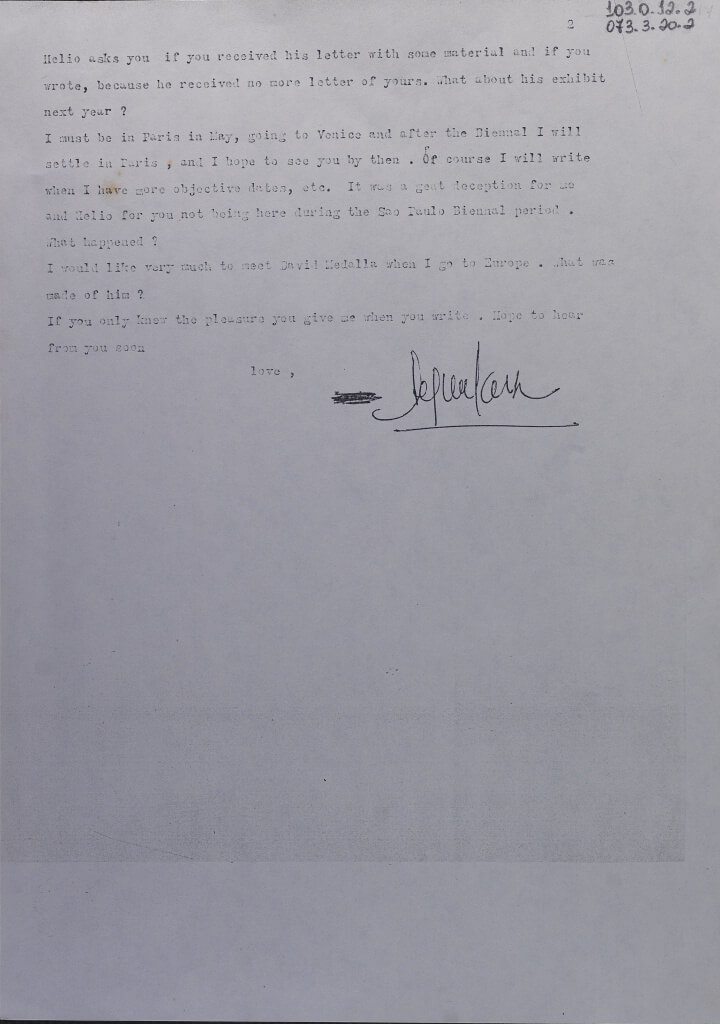 1030.12.2
2
073.3.20.2
Helio asks you if you received his letter with some material and if you
wrote, because he received no more letter of yours. What about his exhibit
next year ?
I must be in Paris in May, going to Venice and after the Biennal I will
settle in Paris , and I hope to see you by then . Of course I will write
when I have more objective dates, etc. It was a geat deception for me
and Helio for you not being here during the Sao Paulo Biennal period .
What happened ?
I would like very much to meet David Medalla when I go to Europe . What was
made of him ?
If you only knew the pleasure you give me when you write . Hope to hear
from you soon
love ,